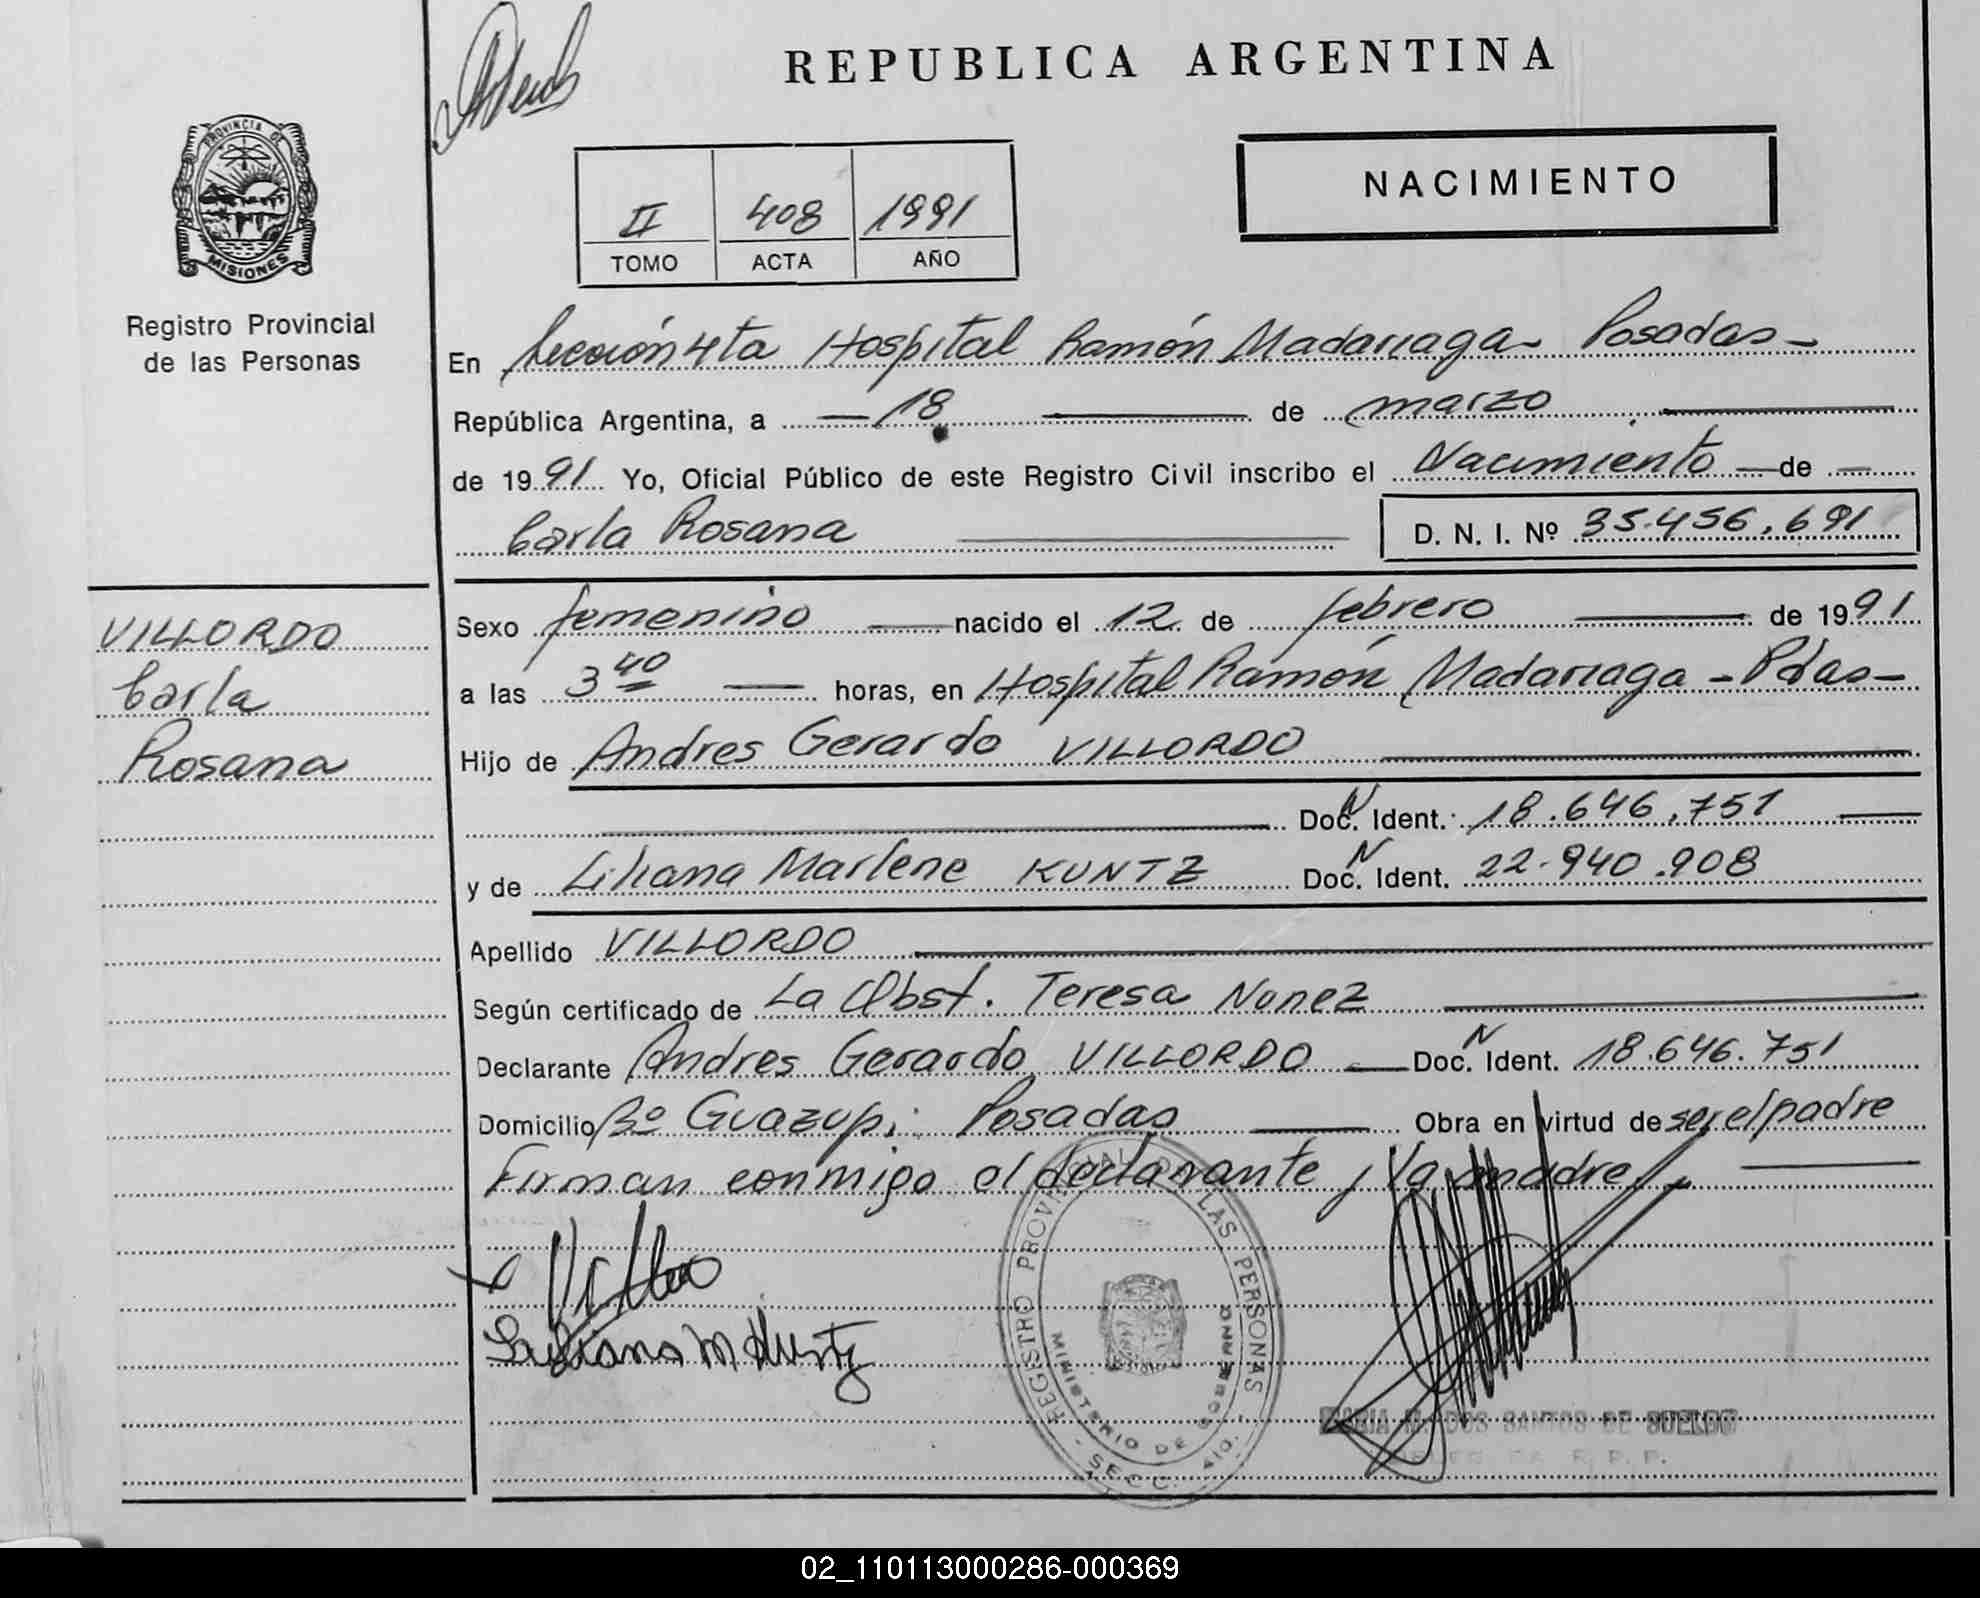 REPUBLICA ARGENTINA
PROVINCIA DE
MISIONES
Registro Provincial
de las Personas
II 408 1991
TOMO ACTA AÑO
NACIMIENTO
En Sección 4ta Hospital Ramón Madariaga - Posadas -
República Argentina, a 18 de marzo
de 1991 Yo, Oficial Público de este Registro Civil inscribo el Nacimiento de
Carla Rosana D. N. I. Nº 35.456.691
VILLORDO
Carla
Rosana
Sexo femenino nacido el 12 de febrero de 1991
a las 3 40 horas, en Hospital Ramón Madariaga - Pdas -
Hijo de Andres Gerardo VILLORDO
Doc. N Ident. 18.646.751
y de Liliana Marlene KUNTZ Doc. N Ident. 22.940.908
Apellido VILLORDO
Según certificado de La Obst. Teresa Nunez
Declarante Andres Gerardo VILLORDO Doc. N Ident. 18.646.751
Domicilio Bº Guazupi Posadas Obra en virtud de ser el padre
Firman conmigo el declarante y la madre
Liliana M Kuntz
REGISTRO PROVINCIAL DE LAS PERSONAS
MINISTERIO DE GOBIERNO
- SECC. 4TO. -
MARIA DOS SANTOS DE SUELDO
R. P. P.
02_110113000286-000369